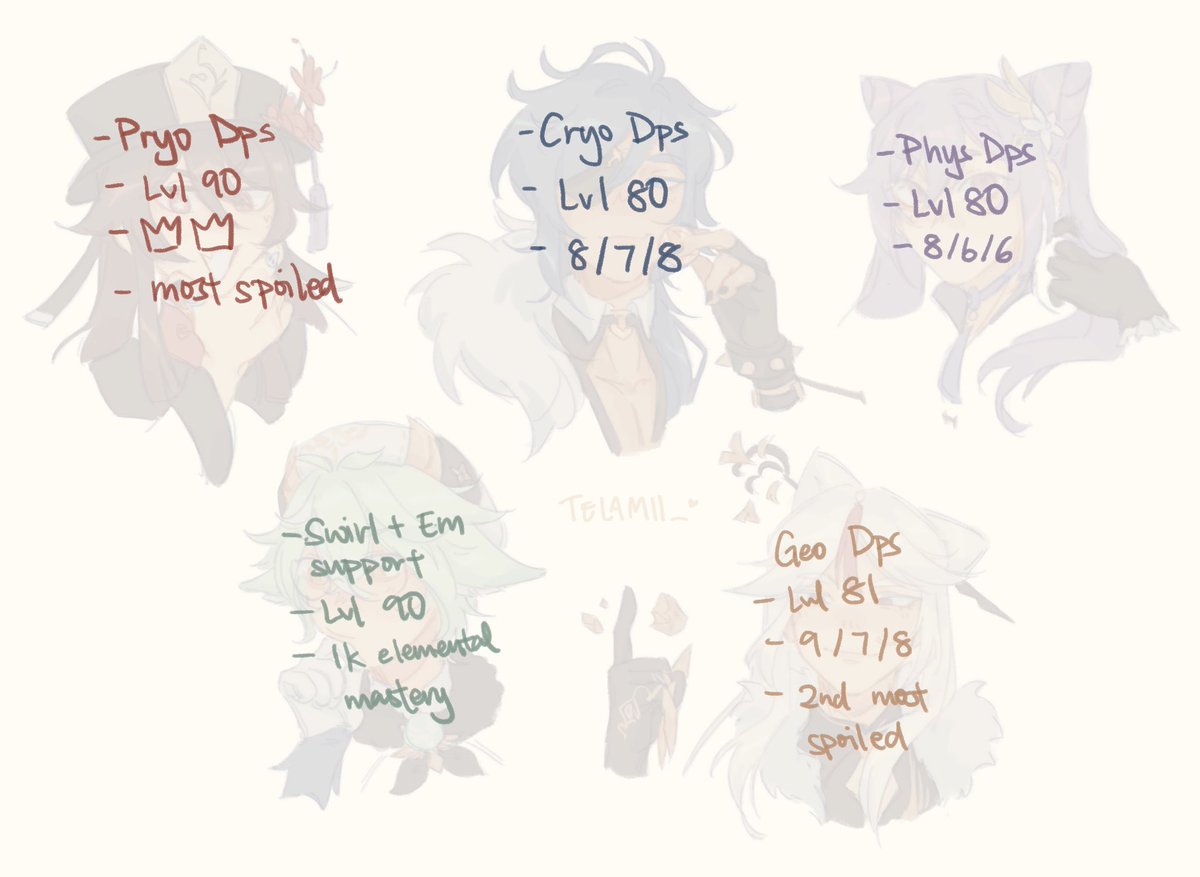 -Pryo Dps
- Lvl 90
-
- most spoiled
-Cryo Dps
- Lvl 80
- 8/7/8
-Phys Dps
-Lvl 80
- 8/6/6
-Swirl + Em
support
-Lvl 90
- 1k elemental
mastery
TELAMII_
Geo Dps
- Lvl 81
- 9/7/8
- 2nd most
spoiled